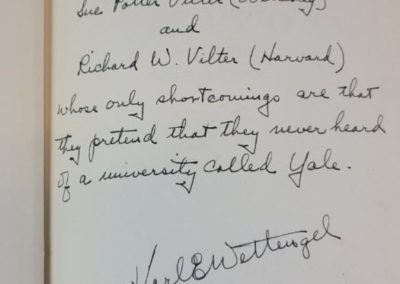 Sue Potter Vilter (
and
Richard W. Vilter (Harvard)
whose only shortcomings are that
they pretend that they never heard
of a university called Yale.
Karl E Wettengel